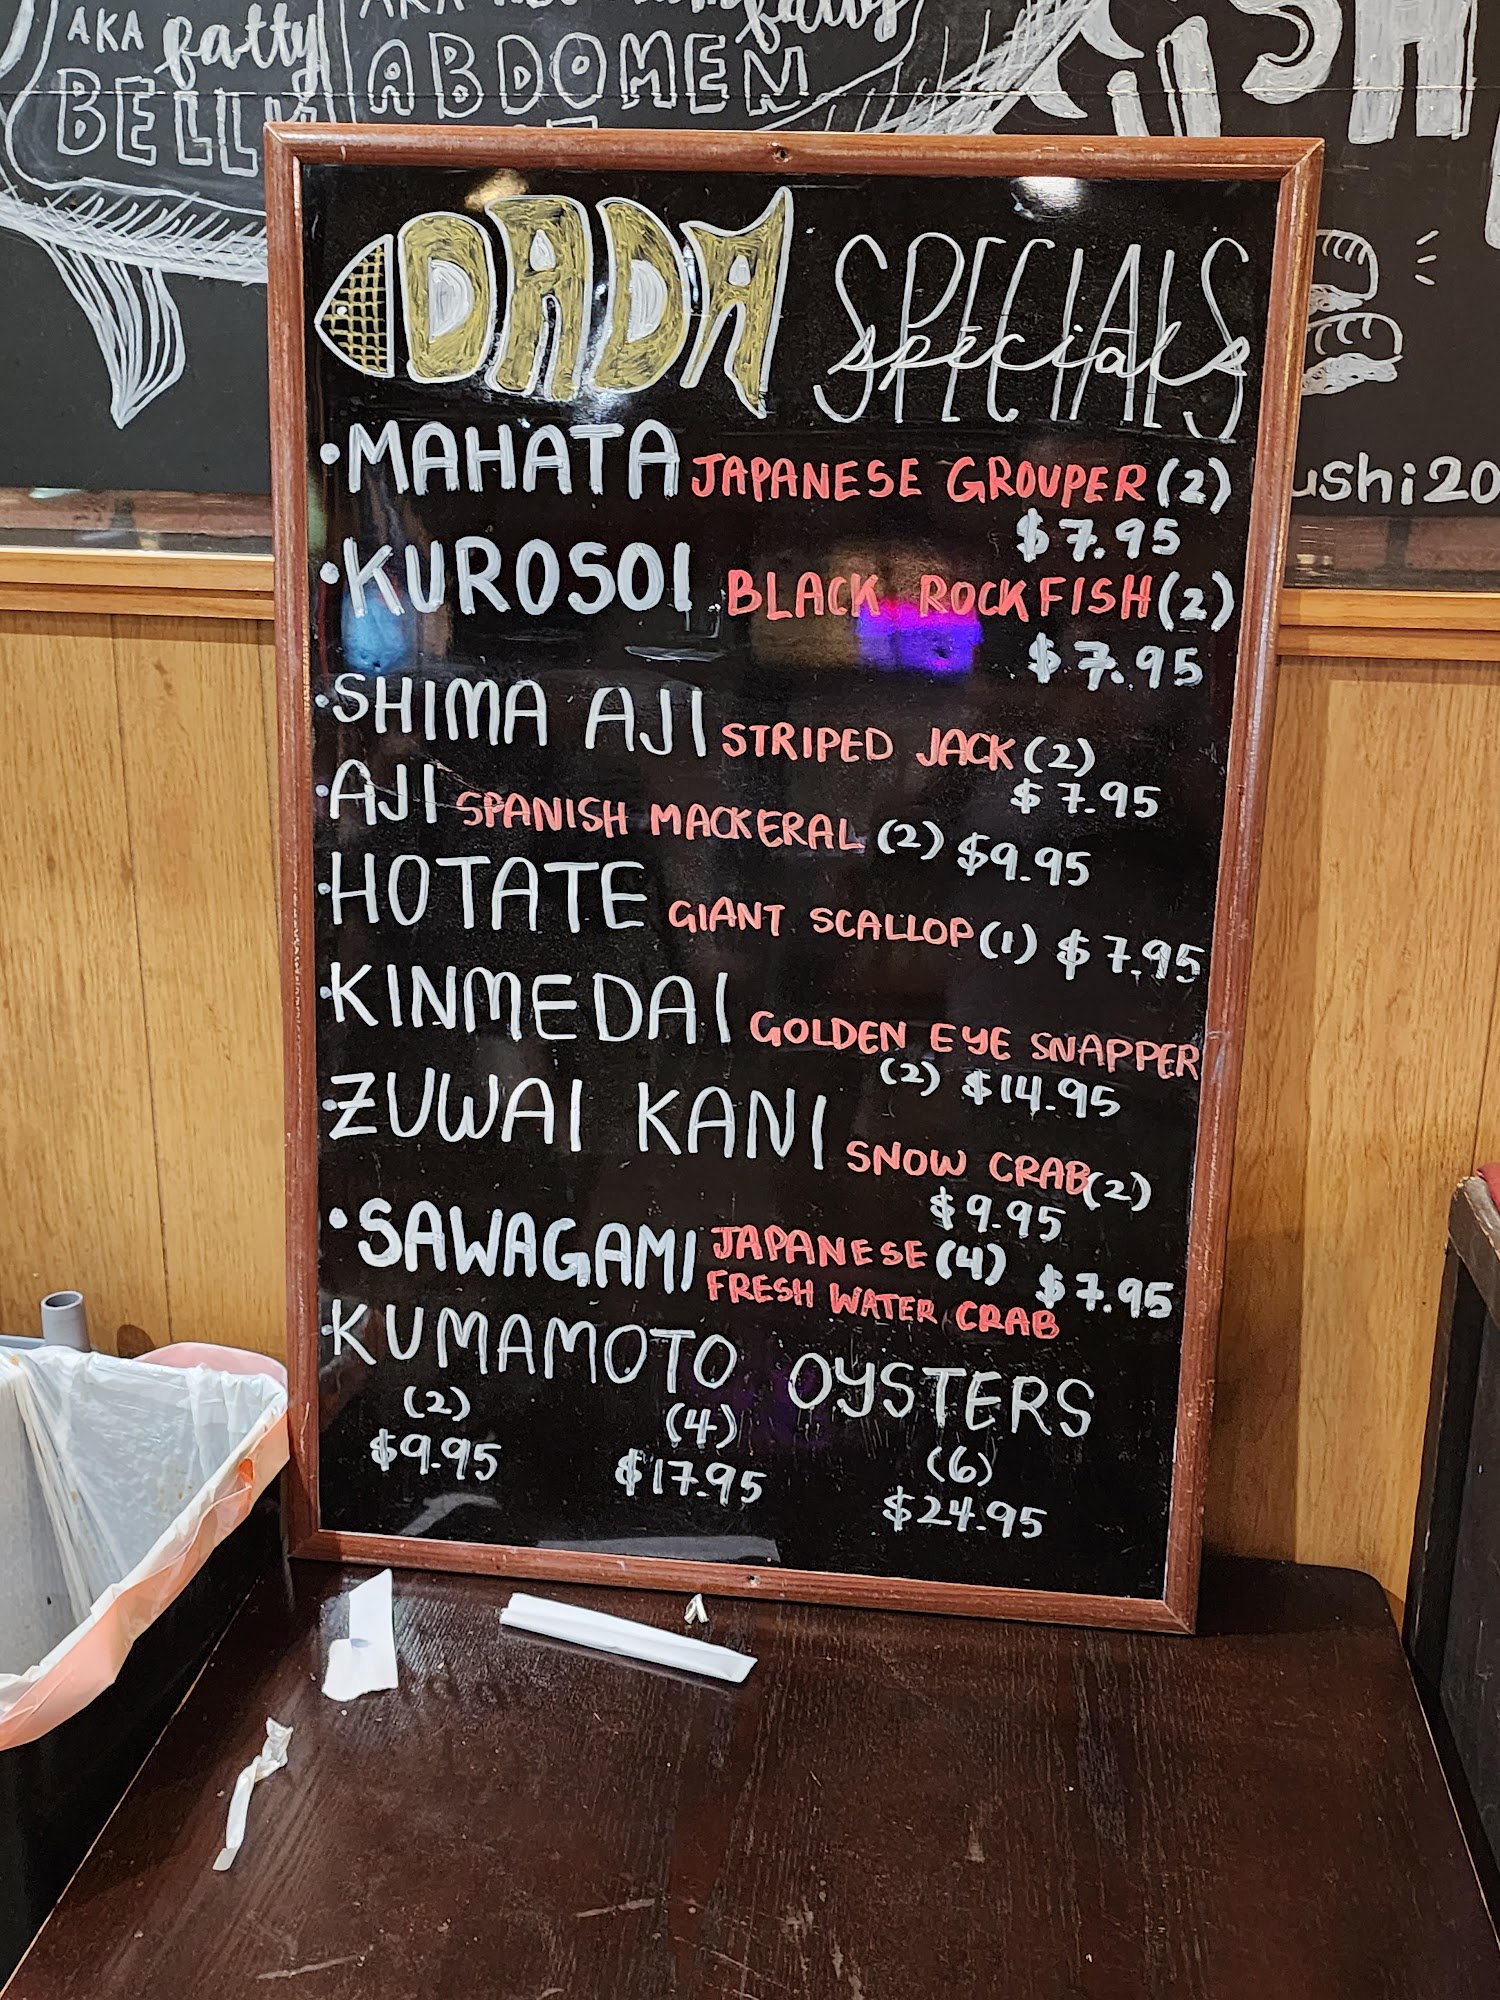 AKA fatty
BELLY
ABDOMEN
DADA SPECIALS
specials
•MAHATA JAPANESE GROUPER (2)
$7.95
•KUROSOI BLACK ROCKFISH (2)
$7.95
•SHIMA AJI STRIPED JACK (2)
$7.95
•AJI SPANISH MACKERAL (2) $9.95
•HOTATE GIANT SCALLOP (1) $7.95
•KINMEDAI GOLDEN EYE SNAPPER
(2) $14.95
•ZUWAI KANI SNOW CRAB (2)
$9.95
•SAWAGAMI JAPANESE (4) $7.95
FRESH WATER CRAB
•KUMAMOTO OYSTERS
(2) (4) (6)
$9.95 $17.95 $24.95
ushi20